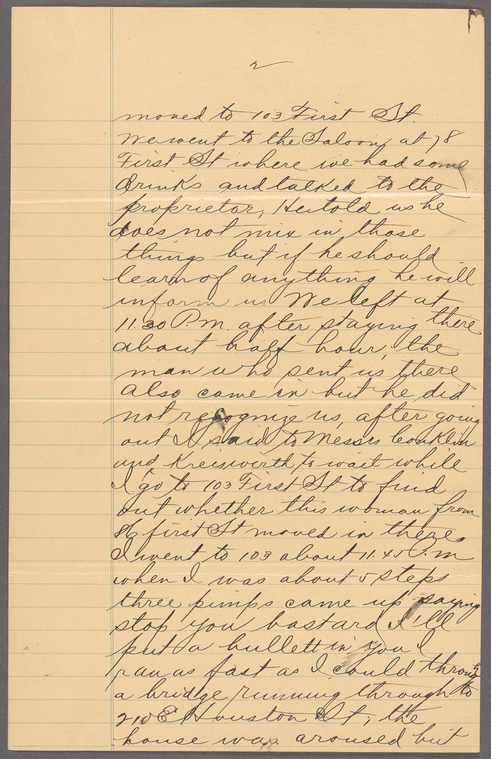 2
moved to 103 First St
We went to the Saloon, at 78
First St where we had some
drinks and talked to the
proprietor, He told us he
does not mix in those
things but if he should
learn of anything he will
inform us We left at
11.30 P.m. after staying there
about half hour, the
man who sent us there
also came in but he did
not recognize us, after going
out I said to Messrs Conklin
and Kreisworth to wait while
I go to 103 First St to find
out whether this woman from
86 first St moved in there.
I went to 103 about 11.45 P.m
when I was about 5 steps
three pimps came up saying
stop you bastard I'll
put a bullett in you I
ran as fast as I could through
a bridge running through to
210 E Houston St, the
house was aroused but